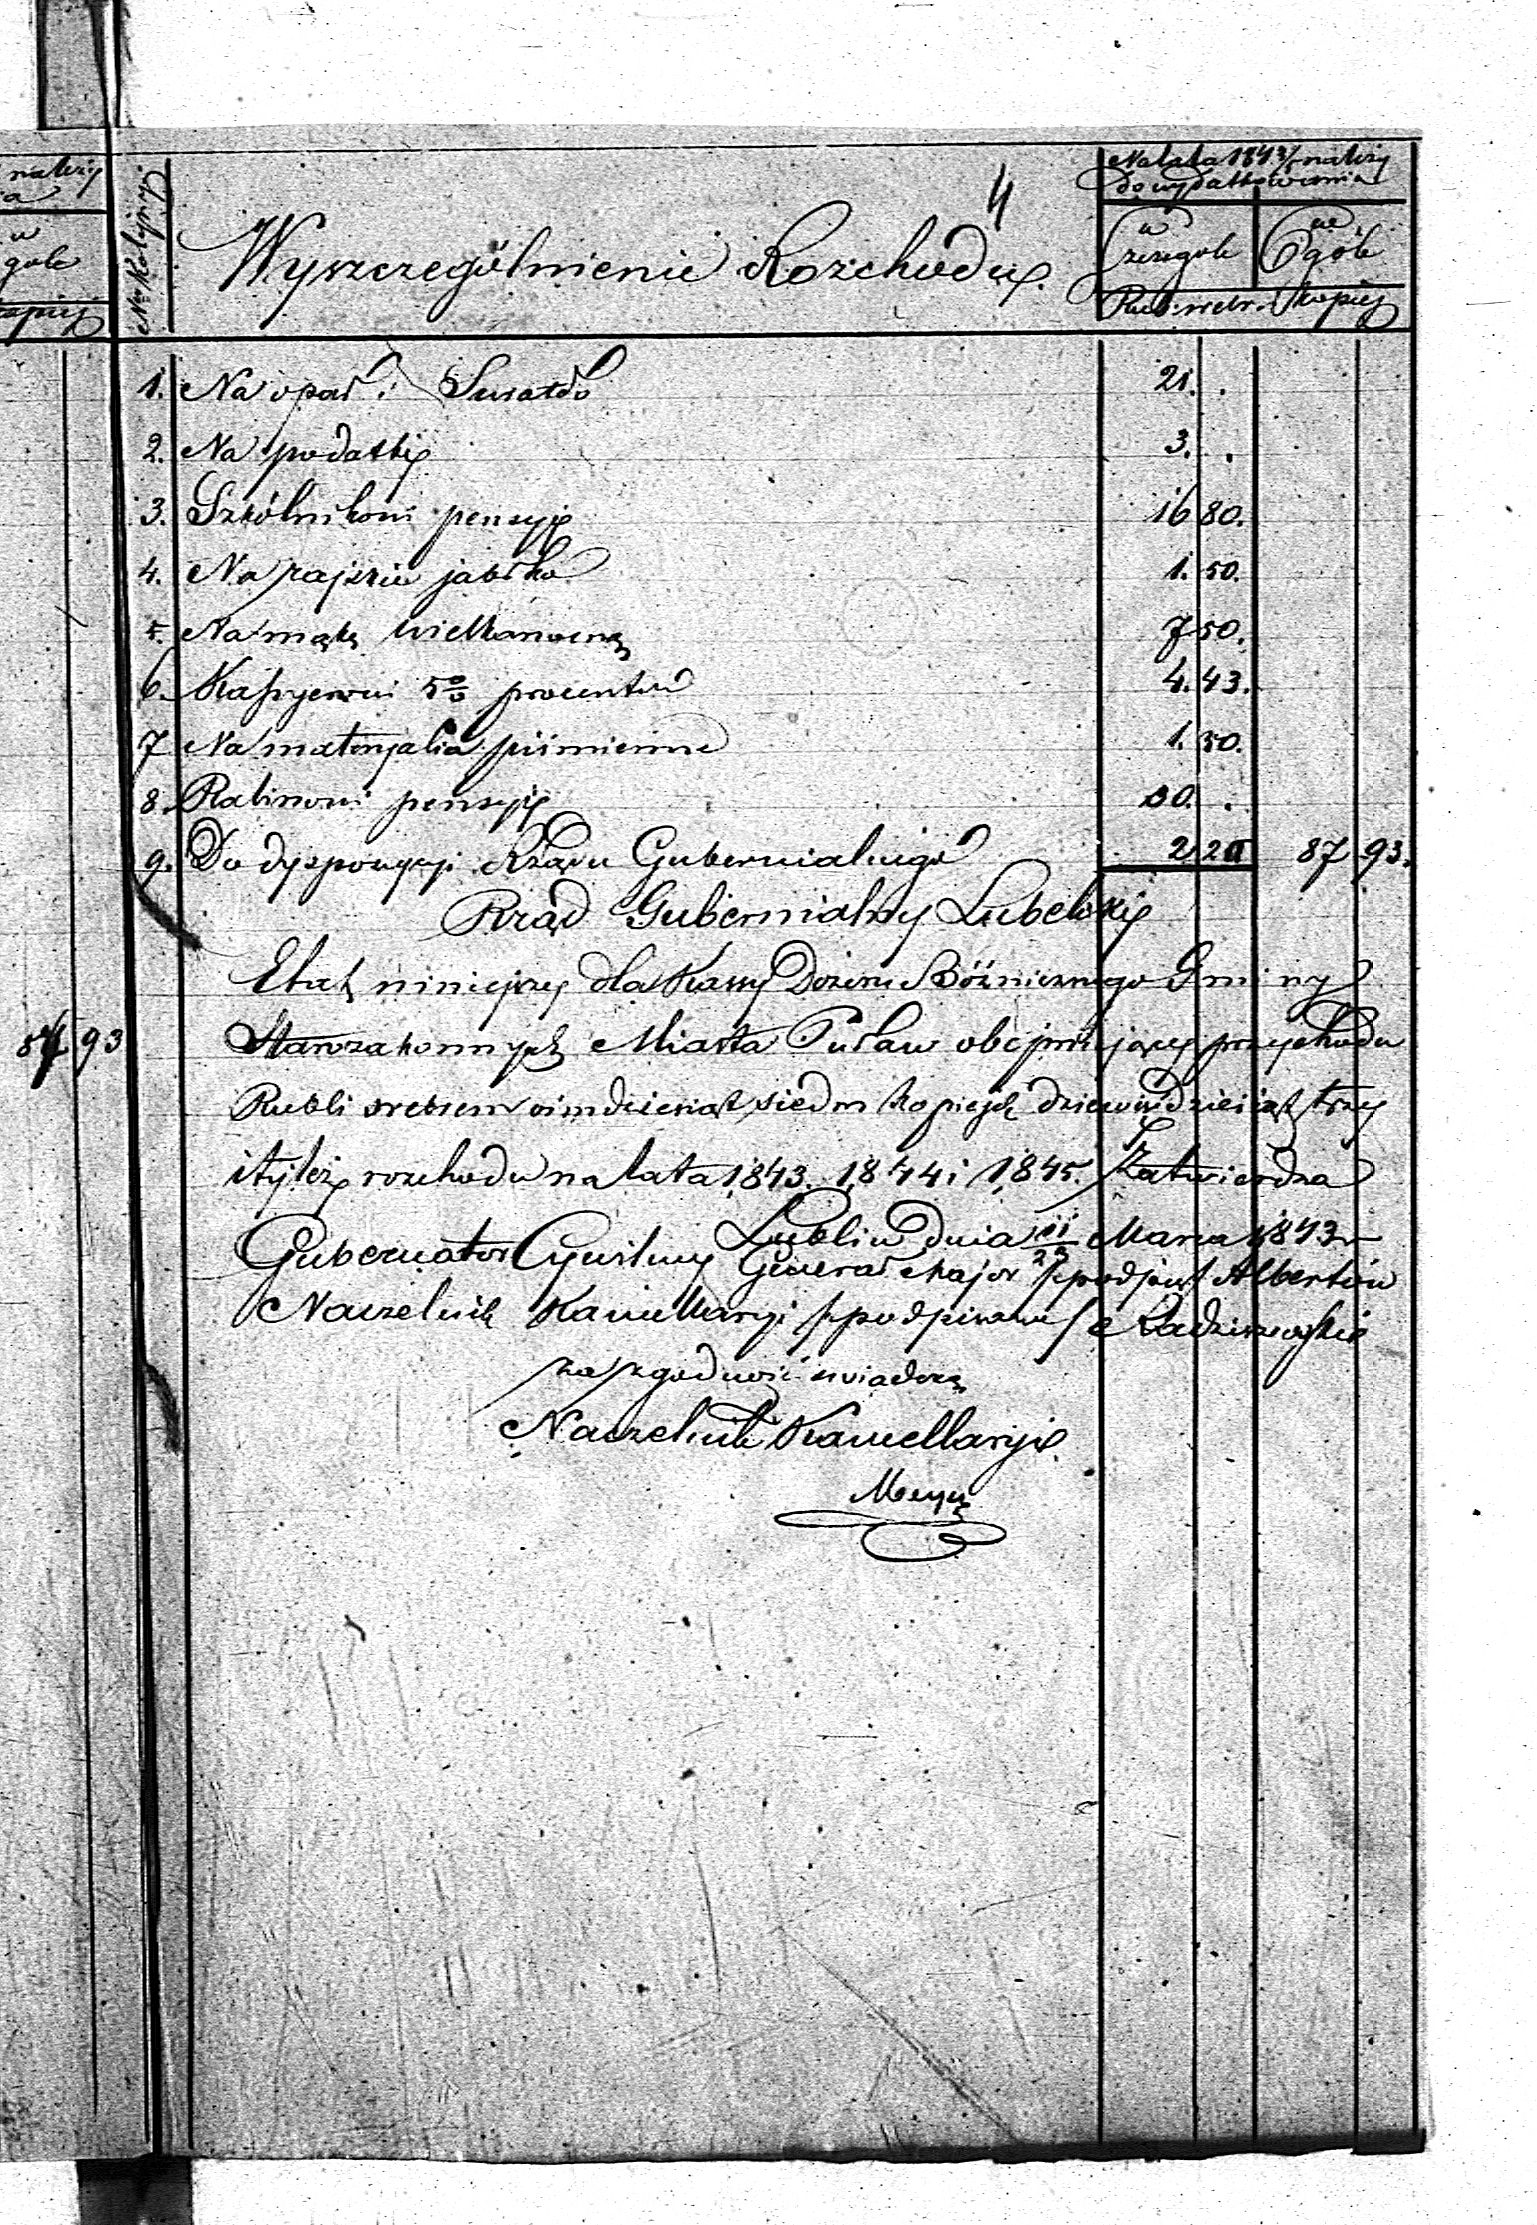 należy
w
gole
kopiej
87 93
4
Nr Kolejny
Wyszczególnienie Rozchodu.
Na lata 1843/5 należy
do wydatkowania
w szczegole
we Ogóle
Rub. srebr. Kopiej
1. Na opał i Światło 21. .
2. Na podatki 3. .
3. Szkólnikowi pensyi 16 80.
4. Na rajskie jabłko 1. 50.
5. Na mąkę wielkanocną 7 50.
6. Kassyerowi 5% procentu 4. 43.
7 Na materyalia piśmienne 1. 50.
8. Rabinowi pensyi 30. .
9. Do dyspozycyi Rządu Gubernialnego 2 20 87 93.
Rząd Gubernialny Lubelski
Etat niniejszy dla Kassy Dozoru Bóżnicznego Gminy
Starozakonnych Miasta Puław obejmujący przychodu
Rubli srebrem ośmdziesiąt siedm kopiejek dziewiędziesiąt trzy
i tyleż rozchodu na lata 1843. 1844 i 1845. Zatwierdza
Lublin dnia 11/23 Marca 1843 r
Gubernator Cywilny Generał Major /podpisał/ Albertów
Naczelnik Kancellaryi /podpisano/ Radziszewski
za zgodność świadczą
Naczelnik Kancellaryi